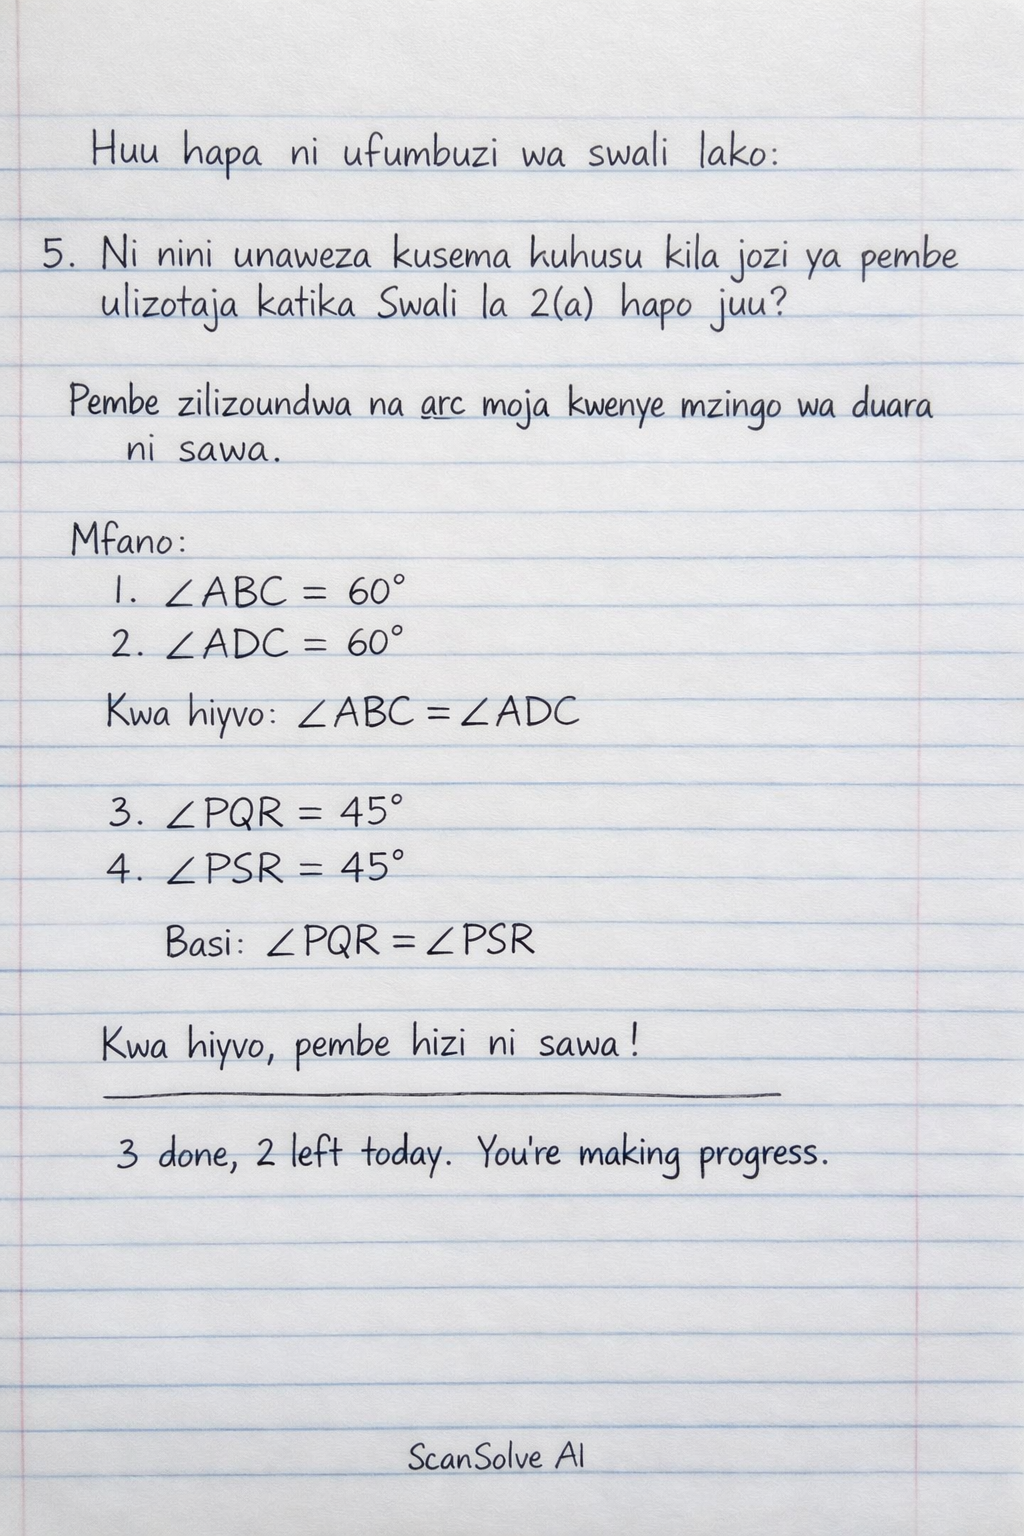 Huu hapa ni ufumbuzi wa swali lako:
5. Ni nini unaweza kusema kuhusu kila jozi ya pembe
ulizotaja katika Swali la 2(a) hapo juu?
Pembe zilizoundwa na arc moja kwenye mzingo wa duara
ni sawa.
Mfano:
1. ∠ABC = 60°
2. ∠ADC = 60°
Kwa hiyvo: ∠ABC = ∠ADC
3. ∠PQR = 45°
4. ∠PSR = 45°
Basi: ∠PQR = ∠PSR
Kwa hiyvo, pembe hizi ni sawa!
3 done, 2 left today. You're making progress.
ScanSolve AI